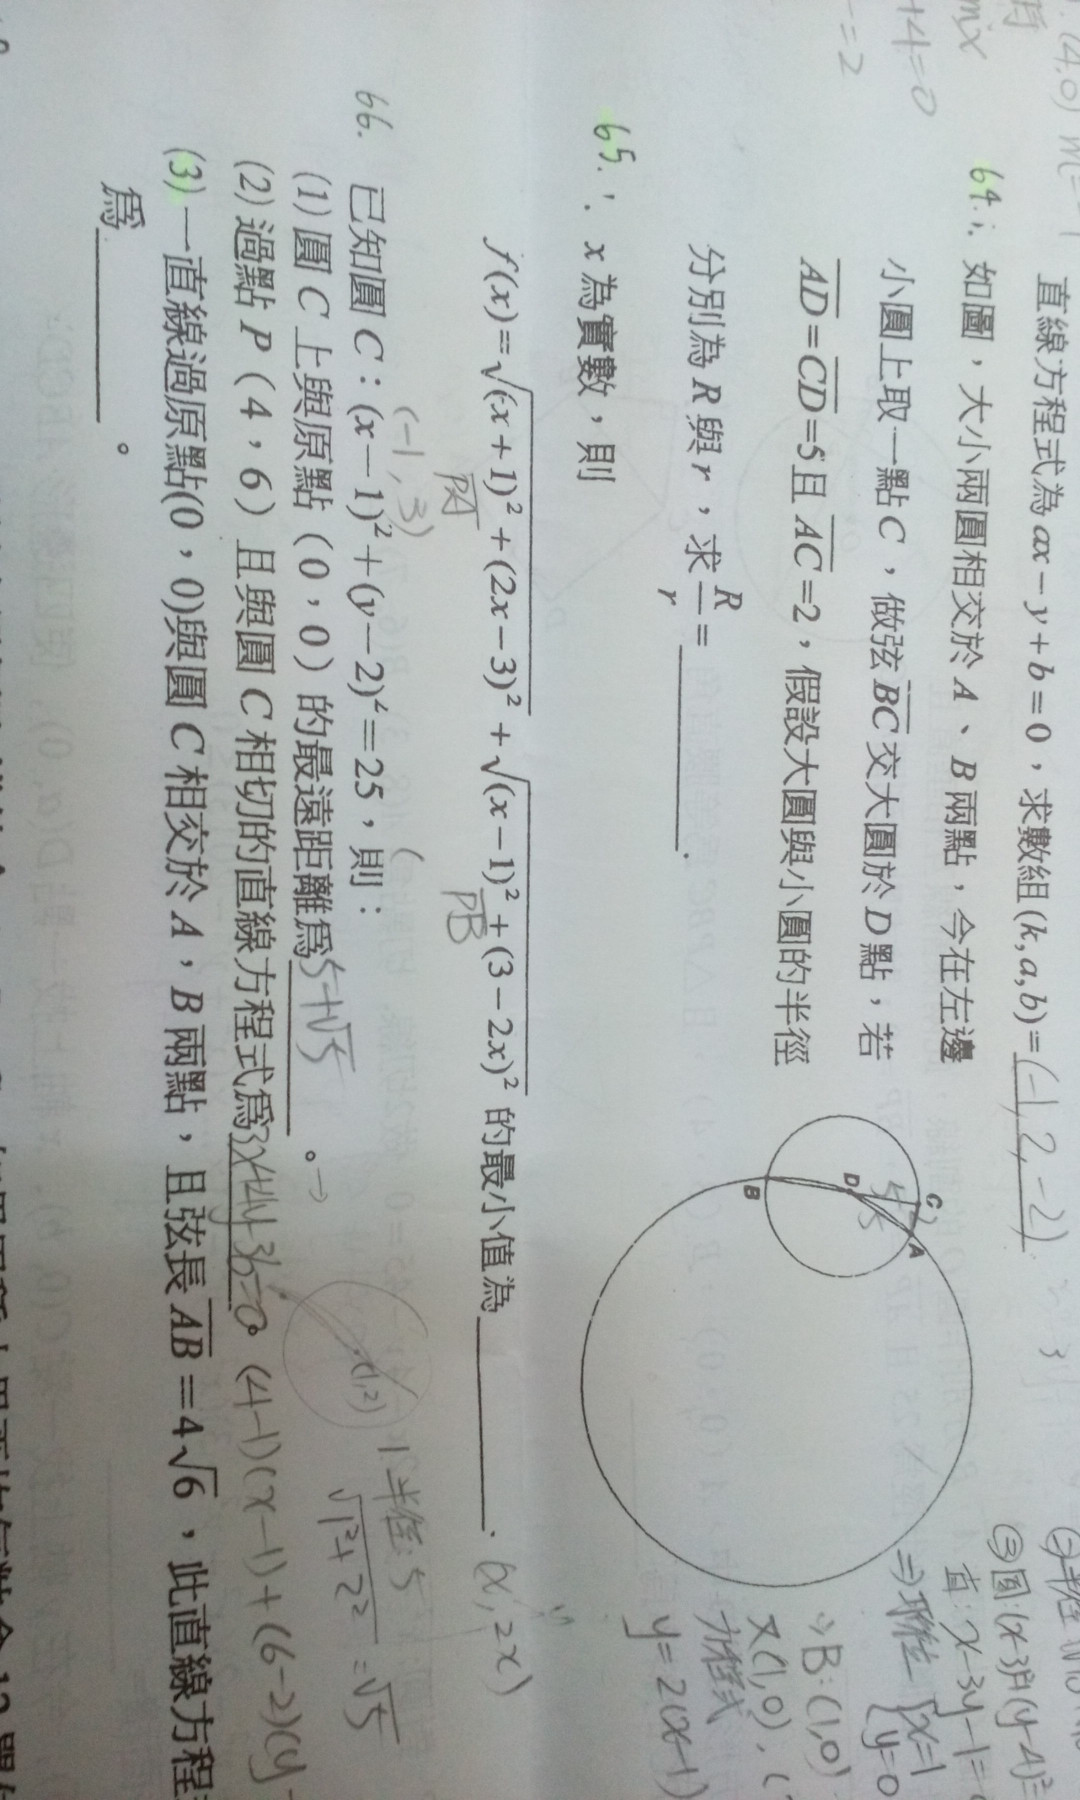 直線方程式為 ax－y＋b＝0，求數組(k,a,b)＝(-1,2,-2)
64. 如圖，大小兩圓相交於 A、B 兩點，今在左邊
小圓上取一點 C，做弦 BC 交大圓於 D 點，若
AD＝CD＝5且 AC＝2，假設大圓與小圓的半徑
分別為 R 與 r，求 R/r ＝________.
C
A
D
B
5
+4=0
=2
③圓:(x-3)²+(y-4)²=
直:x-3y-1=
⇒聯立 {x=1
{y=0
∴B:(1,0)
又(1,0),(
方程式
y=2(x-1)
65. x 為實數，則
f(x)=√(x+1)²+(2x-3)²+√(x-1)²+(3-2x)² 的最小值為________.
PA
PB
(x,2x)
(-1,3)
66. 已知圓 C：(x－1)²＋(y－2)²＝25，則：
(1)圓 C 上與原點（0，0）的最遠距離為5+√5。
(2)過點 P（4，6）且與圓 C 相切的直線方程式為3x+4y-36=0。
(4-1)(x-1)+(6-2)(y-
(1,2)
半徑:5
√1²+2²=√5
(3)一直線過原點(0，0)與圓 C 相交於 A，B 兩點，且弦長 AB＝4√6，此直線方程
為________。